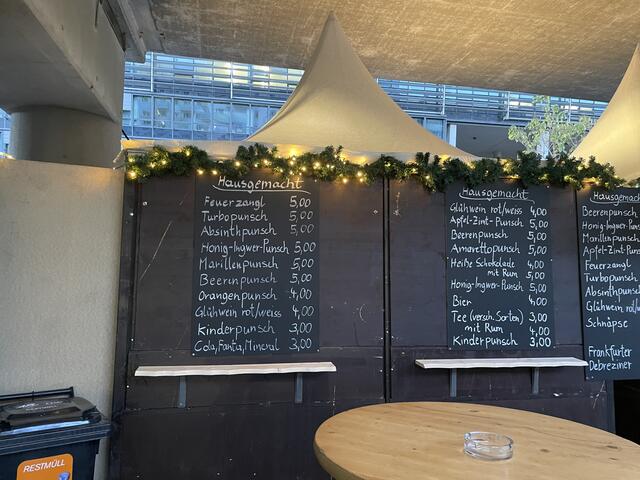 Hausgemacht
Feuerzangl 5,00
Turbopunsch 5,00
Absinthpunsch 5,00
Honig-Ingwer-Punsch 5,00
Marillenpunsch 5,00
Beerenpunsch 5,00
Orangenpunsch 4,00
Glühwein rot/weiss 4,00
Kinderpunsch 3,00
Cola, Fanta, Mineral 3,00
Hausgemacht
Glühwein rot/weiss 4,00
Apfel-Zimt-Punsch 5,00
Beerenpunsch 5,00
Amarettopunsch 5,00
Heiße Schokolade 4,00
mit Rum 5,00
Honig-Ingwer-Punsch 5,00
Bier 4,00
Tee (versch. Sorten) 3,00
mit Rum 4,00
Kinderpunsch 3,00
Hausgemacht
Beerenpunsch
Honig-Ingwer
Marillenpunsch
Apfel-Zimt-Punsch
Feuerzangl
Turbopunsch
Absinthpunsch
Glühwein rot/
Schnäpse
Frankfurter
Debreziner
RESTMÜLL